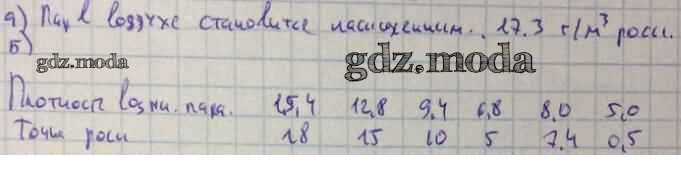 а) Пар в воздухе становится насыщенным. 17.3 г/м³ росы.
б)
gdz.moda gdz.moda
Плотность водян. пара. 15,4 12,8 9,4 6,8 8,0 5,0
Точка росы 18 15 10 5 7.4 0,5